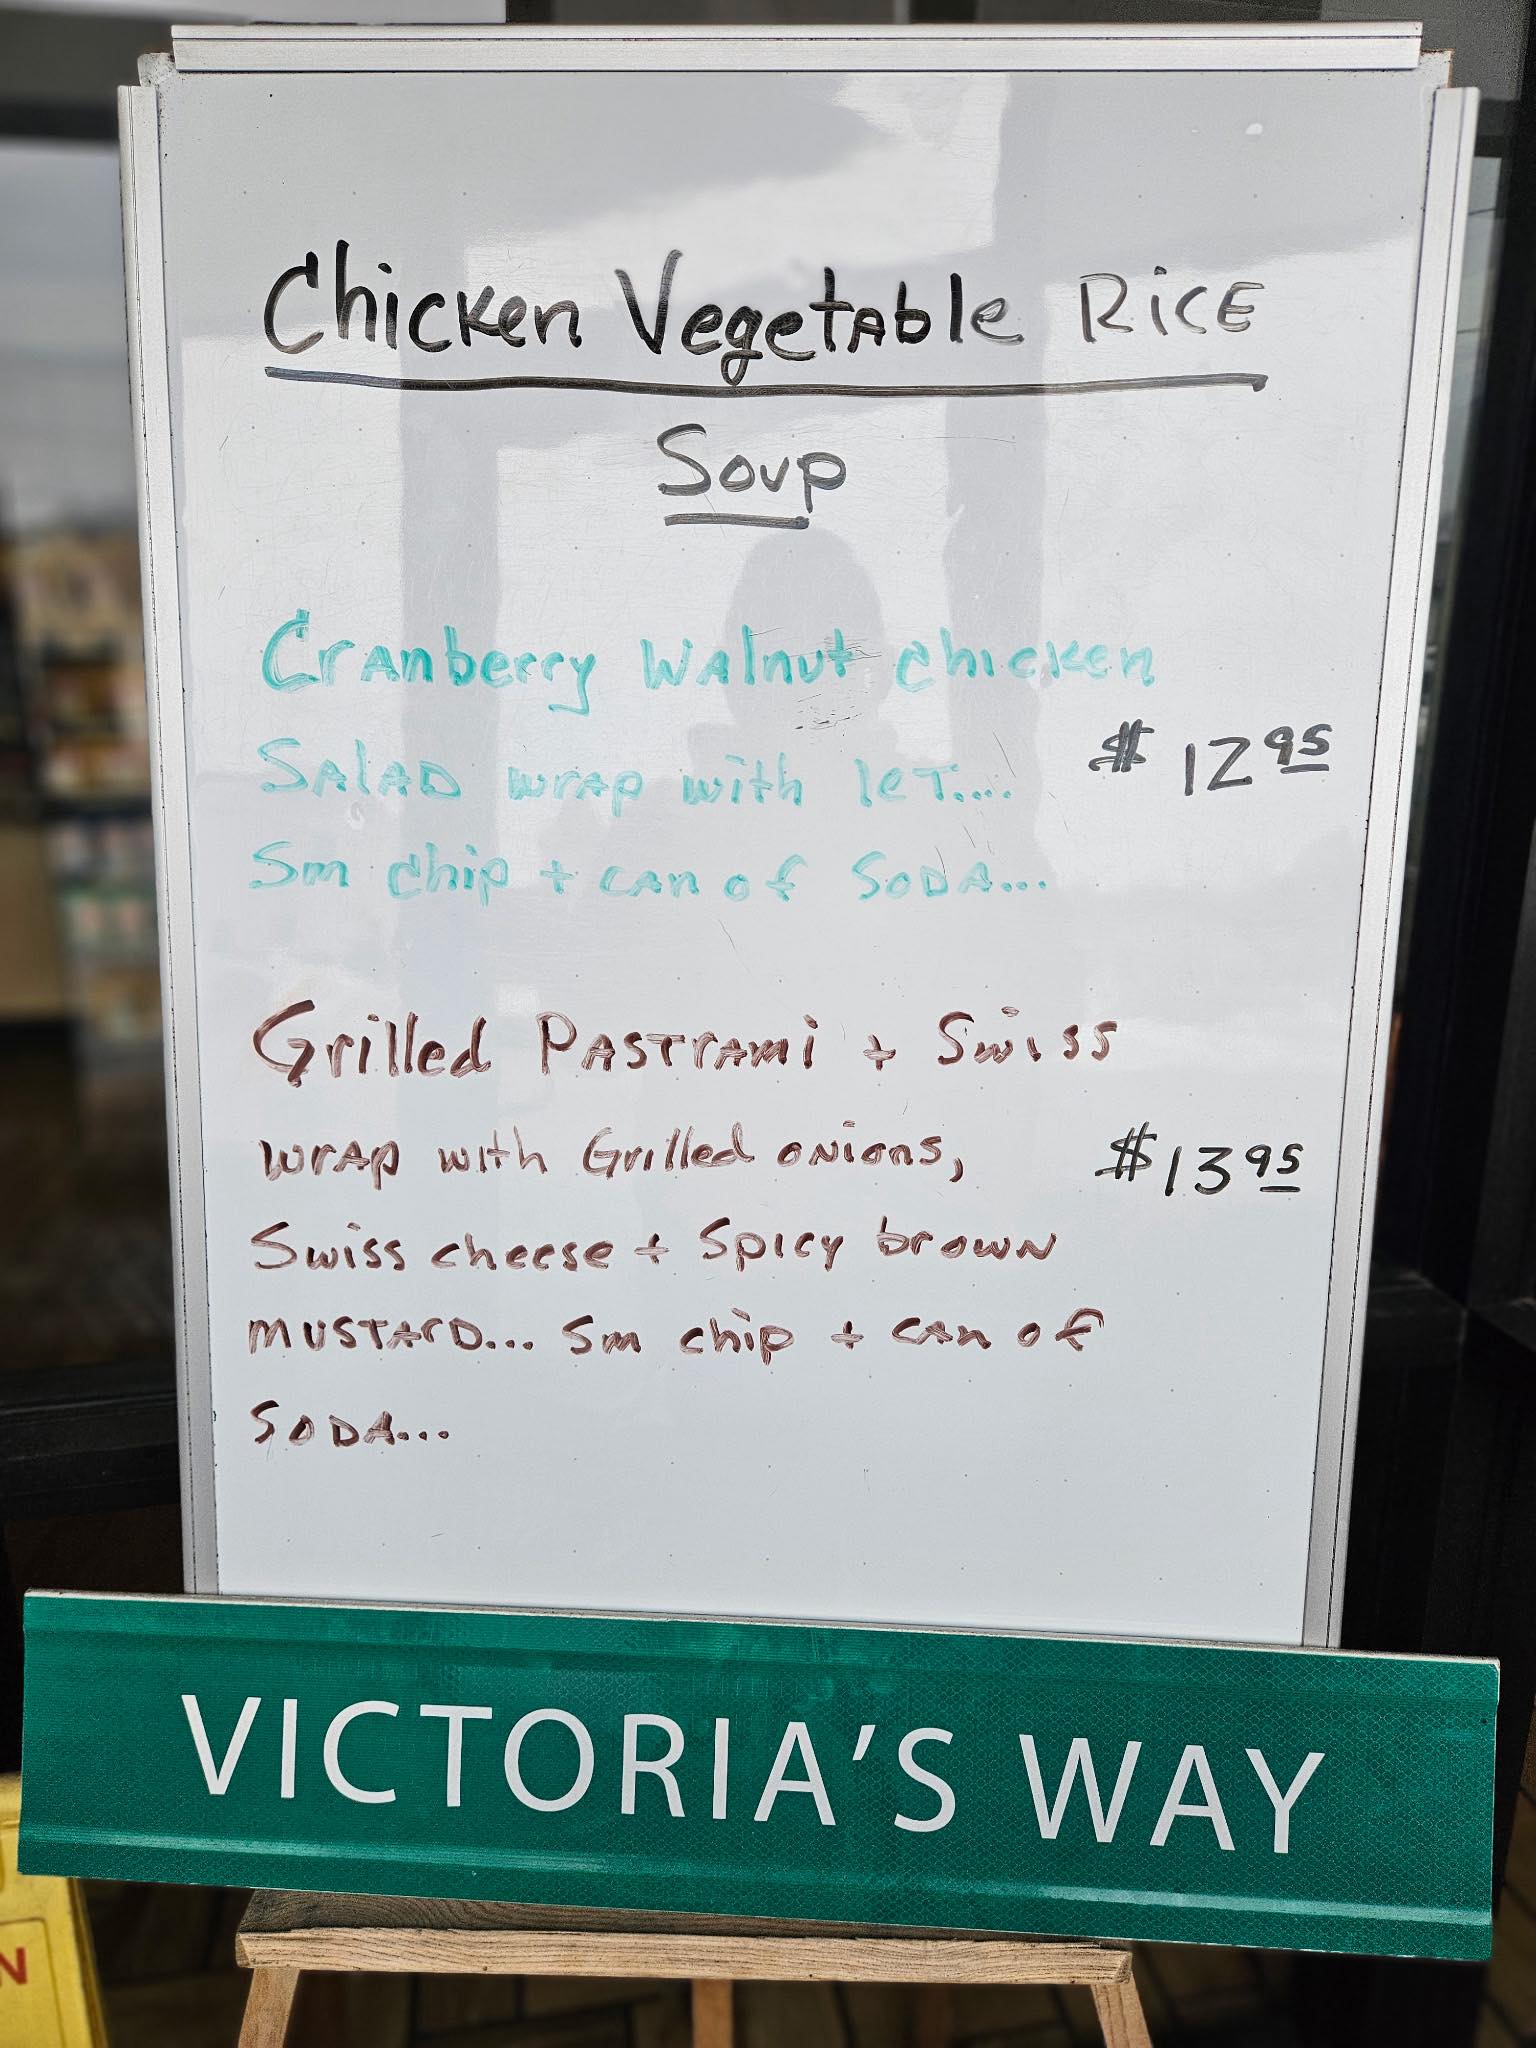 Chicken Vegetable Rice
Soup
Cranberry Walnut chicken
Salad wrap with let....
$ 12 95
Sm chip + can of Soda...
Grilled Pastrami + Swiss
wrap with Grilled onions,
$13 95
Swiss cheese + Spicy brown
mustard... Sm chip + can of
Soda...
VICTORIA'S WAY
N